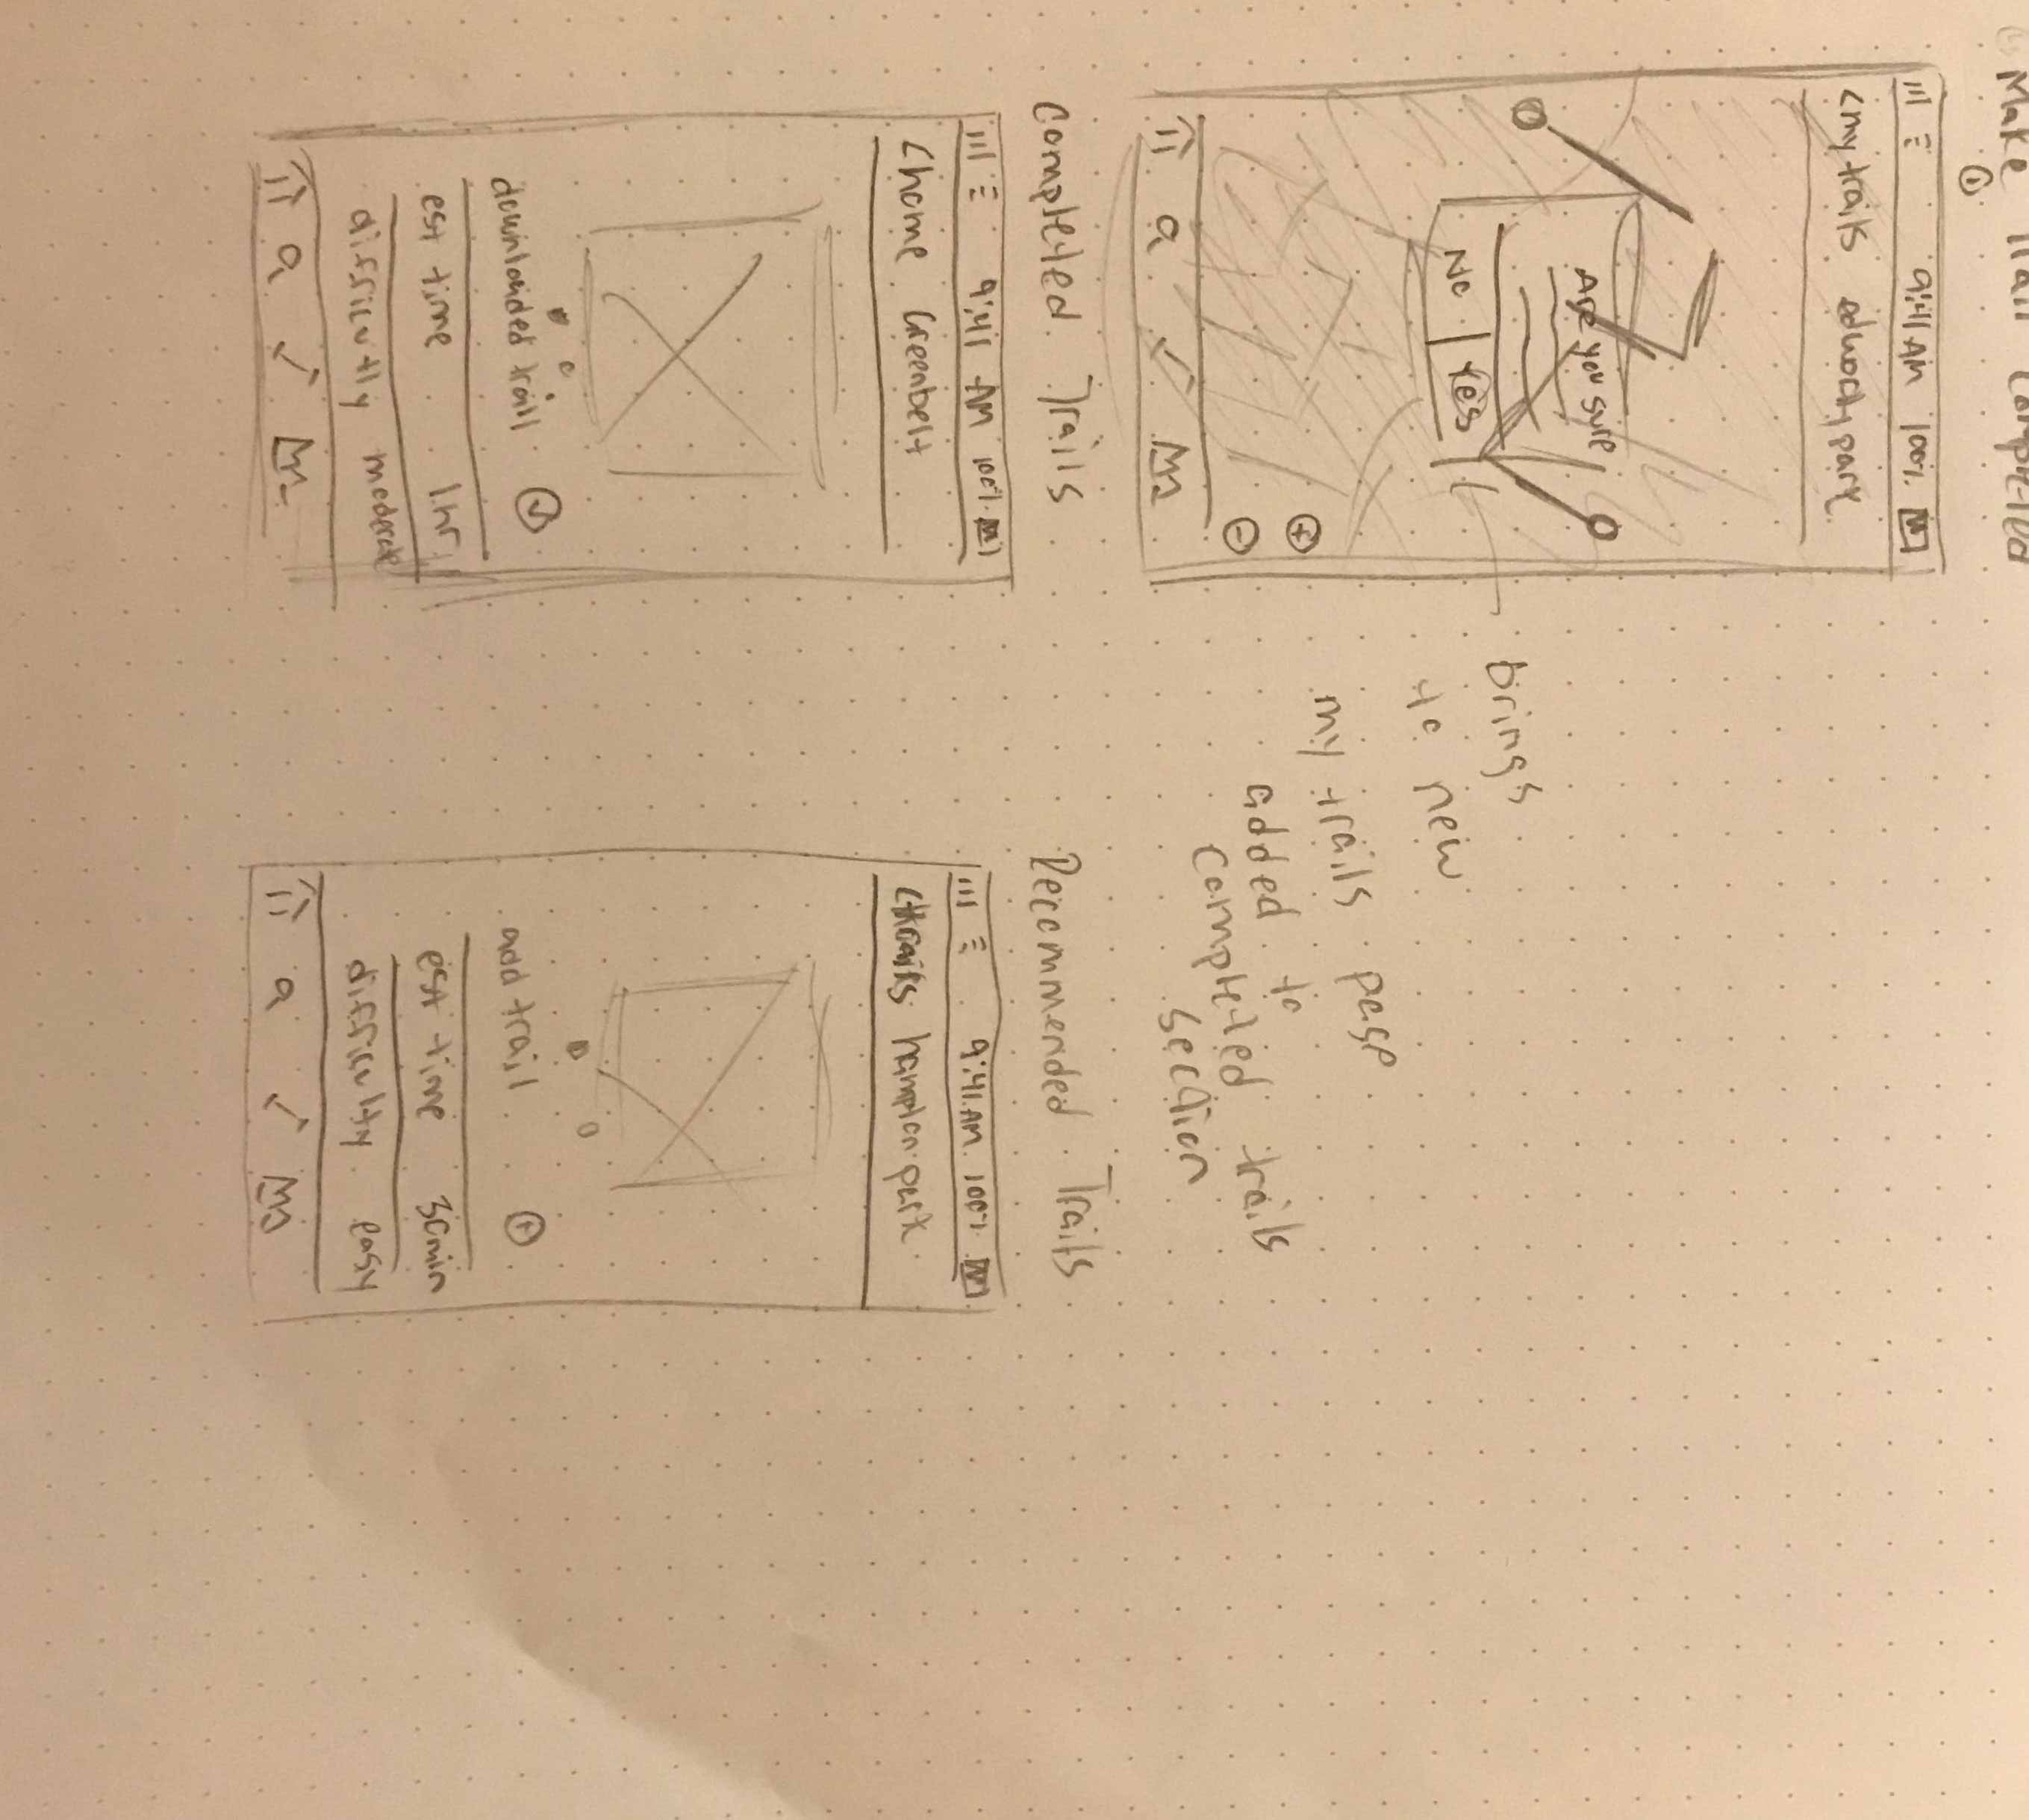 Make Trail Completed
9:41 AM 100%
<my trails edwards park
Are you sure
No Yes
+
-
brings
to new
my trails page
added to
completed trails
section
Completed Trails
9:41 AM 100%
<home Greenbelt
downloaded trail
est time 1hr
difficutly moderate
Recommended Trails
9:41 AM 100%
hampton park
add trail +
est time 30min
difficulty easy